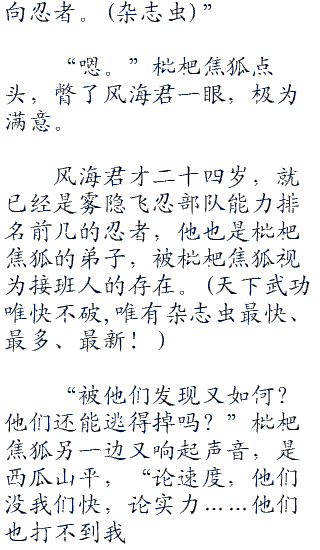 向忍者。(杂志虫)”
“嗯。”枇杷焦狐点
头，瞥了风海君一眼，极为
满意。
风海君才二十四岁，就
已经是雾隐飞忍部队能力排
名前几的忍者，他也是枇杷
焦狐的弟子，被枇杷焦狐视
为接班人的存在。(天下武功
唯快不破,唯有杂志虫最快、
最多、最新！)
“被他们发现又如何？
他们还能逃得掉吗？”枇杷
焦狐另一边又响起声音，是
西瓜山平，“论速度，他们
没我们快，论实力……他们
也打不到我